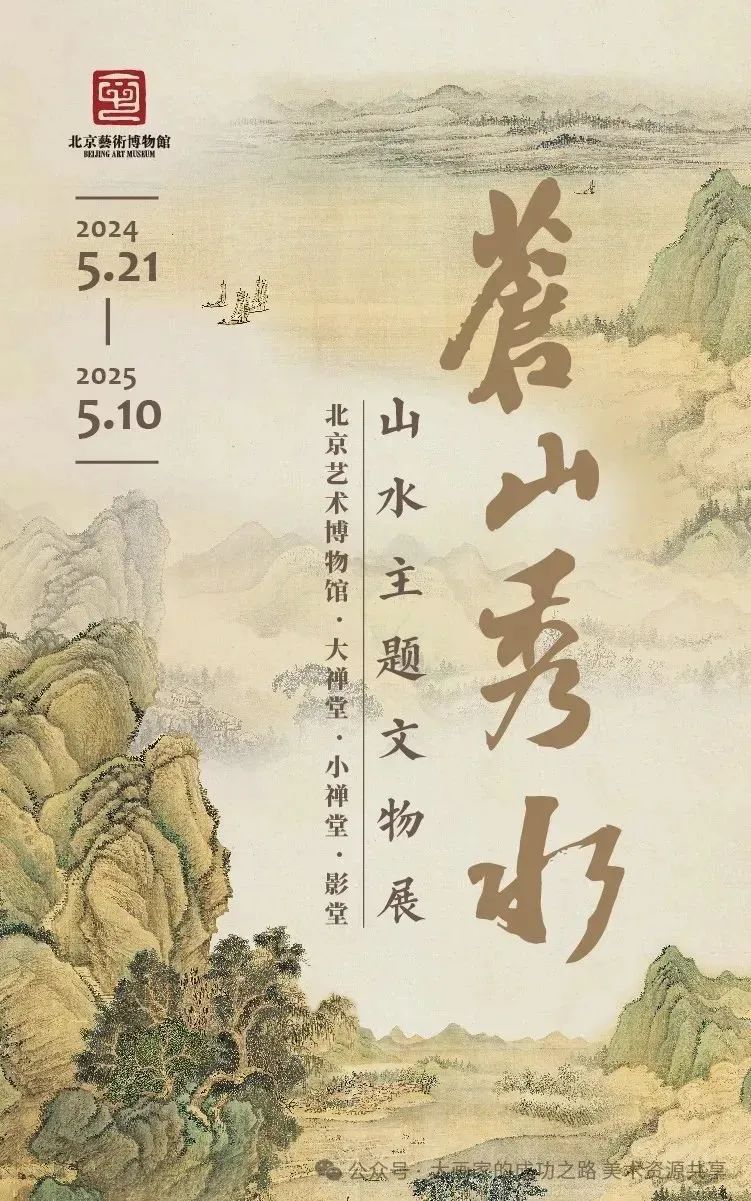 北京藝術博物館
BEIJING ART MUSEUM
2024
5.21
2025
5.10
蒼山秀水
山水主题文物展
北京艺术博物馆·大禅堂·小禅堂·影堂
公众号·大画家的成功之路 美术资源共享